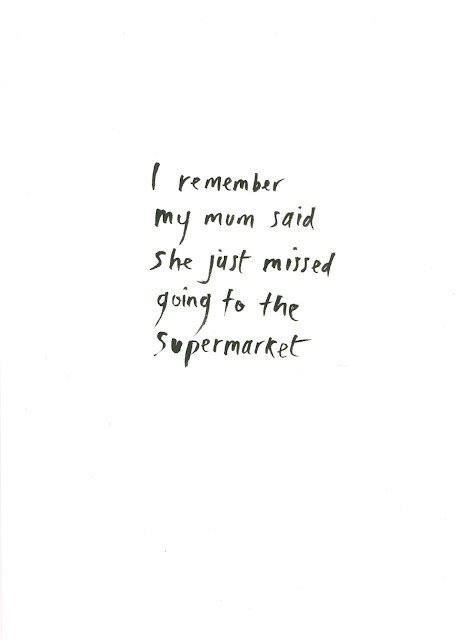 I remember
my mum said
she just missed
going to the
supermarket